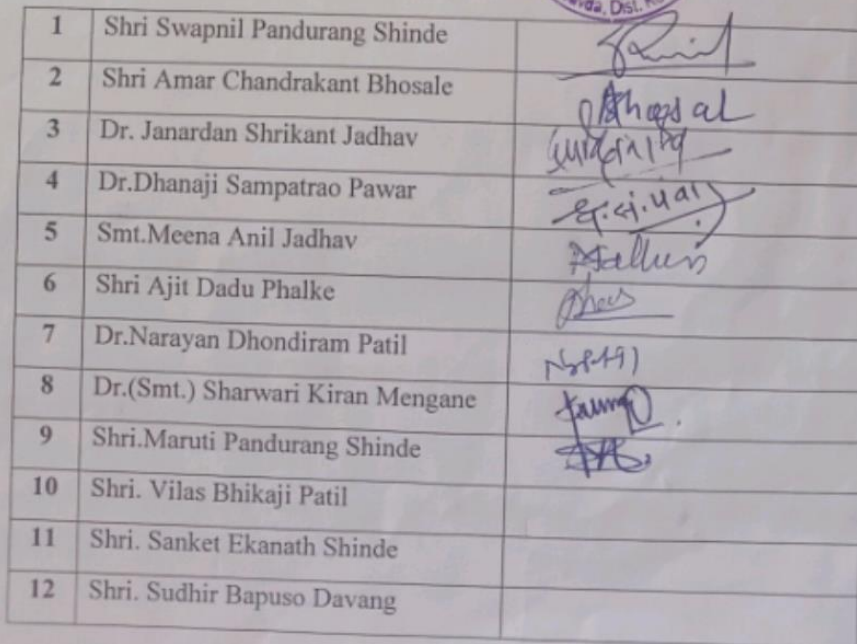 vda, Dist.
1 Shri Swapnil Pandurang Shinde
2 Shri Amar Chandrakant Bhosale
3 Dr. Janardan Shrikant Jadhav
4 Dr.Dhanaji Sampatrao Pawar
5 Smt.Meena Anil Jadhav
6 Shri Ajit Dadu Phalke
7 Dr.Narayan Dhondiram Patil
8 Dr.(Smt.) Sharwari Kiran Mengane
9 Shri.Maruti Pandurang Shinde
10 Shri. Vilas Bhikaji Patil
11 Shri. Sanket Ekanath Shinde
12 Shri. Sudhir Bapuso Davang